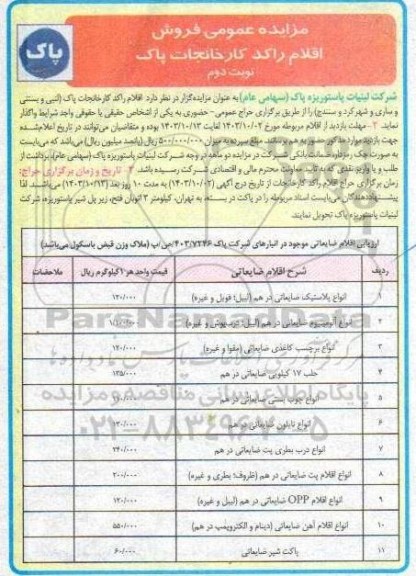 مزایده عمومی فروش
اقلام راکد کارخانجات پاک
نوبت دوم
پاک
شرکت لبنیات پاستوریزه پاک (سهامی عام) به عنوان مزایده‌گزار در نظر دارد اقلام راکد کارخانجات پاک (لبنی و بستنی
و ساری و شهرکرد و سنندج) را از طریق برگزاری حراج عمومی- حضوری به یکی از اشخاص حقیقی یا حقوقی واجد شرایط واگذار
نماید. ۲- مهلت بازدید از اقلام مربوطه مورخ ۱۴۰۳/۱۰/۰۲ لغایت ۱۴۰۳/۱۰/۱۲ بوده و متقاضیان می‌توانند در تاریخ اعلام‌شده
جهت بازدید موارد مذکور حضور به هم برسانند. مبلغ سپرده به میزان ۵۰۰/۰۰۰/۰۰۰ ریال (پانصد میلیون ریال) می‌باشد که می‌بایست
به صورت چک رمزدار، ضمانت بانکی شرکت در مزایده دو ماهه در وجه شرکت لبنیات پاستوریزه پاک (سهامی عام)، برداشت از
طلب و یا واریز نقدی که به تایید معاونت محترم مالی و اقتصادی شرکت رسیده باشد. ۳- تاریخ و زمان برگزاری حراج:
زمان برگزاری حراج اقلام راکد کارخانجات از تاریخ درج آگهی (۱۴۰۳/۱۰/۰۲) به مدت ۱۰ روز بعد (۱۴۰۳/۱۰/۱۳) می‌باشد. لذا
پیشنهاددهندگان می‌بایست اسناد مربوطه را در پاکت در بسته، به تهران، کیلومتر ۳ اتوبان فتح، زیر پل شیر پاستوریزه، شرکت
لبنیات پاستوریزه پاک تحویل نمایند.
ارزیابی اقلام ضایعاتی موجود در انبارهای شرکت پاک ۴۰۳/۷۲۴۶/ص/پ (ملاک وزن قبض باسکول می‌باشد)
ردیف شرح اقلام ضایعاتی قیمت واحد هر ۱کیلوگرم ریال ملاحضات
۱ انواع پلاستیک ضایعاتی در هم (لیبل؛ فویل و غیره) ۱۲۰/۰۰۰
۲ انواع آلومینیوم ضایعاتی در هم (لیبل؛ درپوش و غیره)
۳ انواع برچسب کاغذی ضایعاتی (مقوا و غیره) ۱۲۰/۰۰۰
۴ حلب ۱۷ کیلویی ضایعاتی در هم ۱۳۵/۰۰۰
۵ انواع چوب بستنی ضایعاتی در هم
۶ انواع نایلون ضایعاتی در هم ۱۳۰/۰۰۰
۷ انواع درب بطری پت ضایعاتی در هم ۲۴۰/۰۰۰
۸ انواع اقلام پت ضایعاتی در هم (ظروف؛ بطری و غیره) ۲۰۰/۰۰۰
۹ انواع اقلام OPP ضایعاتی در هم (لیبل و غیره) ۱۲۰/۰۰۰
۱۰ انواع اقلام آهن ضایعاتی (دینام و الکتروپمپ در هم) ۵۵۰/۰۰۰
۱۱ پاکت شیر ضایعاتی ۶۰/۰۰۰
ParsNamadData
پایگاه اطلاع رسانی مناقصه و مزایده